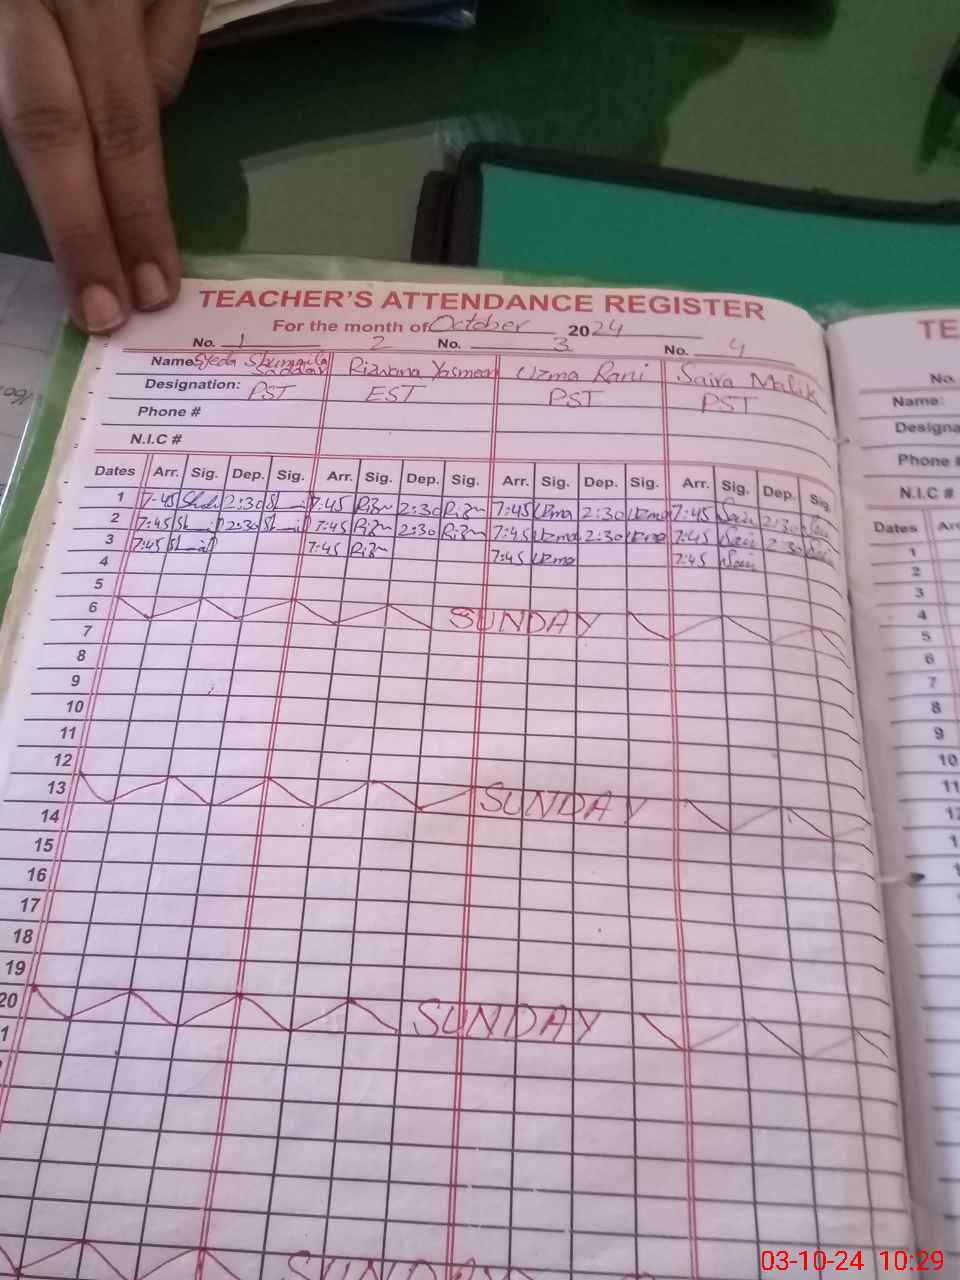 TEACHER'S ATTENDANCE REGISTER
For the month of October 2024
No. 1 2 No. 3 No. 4
Name Syeda Shumaila Rizwana Yasmeen Uzma Rani Saira Malik
Designation: PST EST PST PST
Phone #
N.I.C #
Dates Arr. Sig. Dep. Sig. Arr. Sig. Dep. Sig. Arr. Sig. Dep. Sig. Arr. Sig. Dep. Sig.
1 7:45 2:30 7:45 Rizw 2:30 Rizw 7:45 Uzma 2:30 Uzma 7:45 Sair 2:30 Sair
2 7:45 2:30 7:45 Rizw 2:30 Rizw 7:45 Uzma 2:30 Uzma 7:45 Sair 2:30 Sair
3 7:45 7:45 Rizw 7:45 Uzma 7:45 Sair
4
5
6 SUNDAY
7
8
9
10
11
12
13 SUNDAY
14
15
16
17
18
19
20 SUNDAY
1
SUNDAY
TE
No.
Name:
Designa
Phone #
N.I.C #
Dates Ar
1
2
3
4
5
6
7
8
9
10
11
12
1
03-10-24 10:29